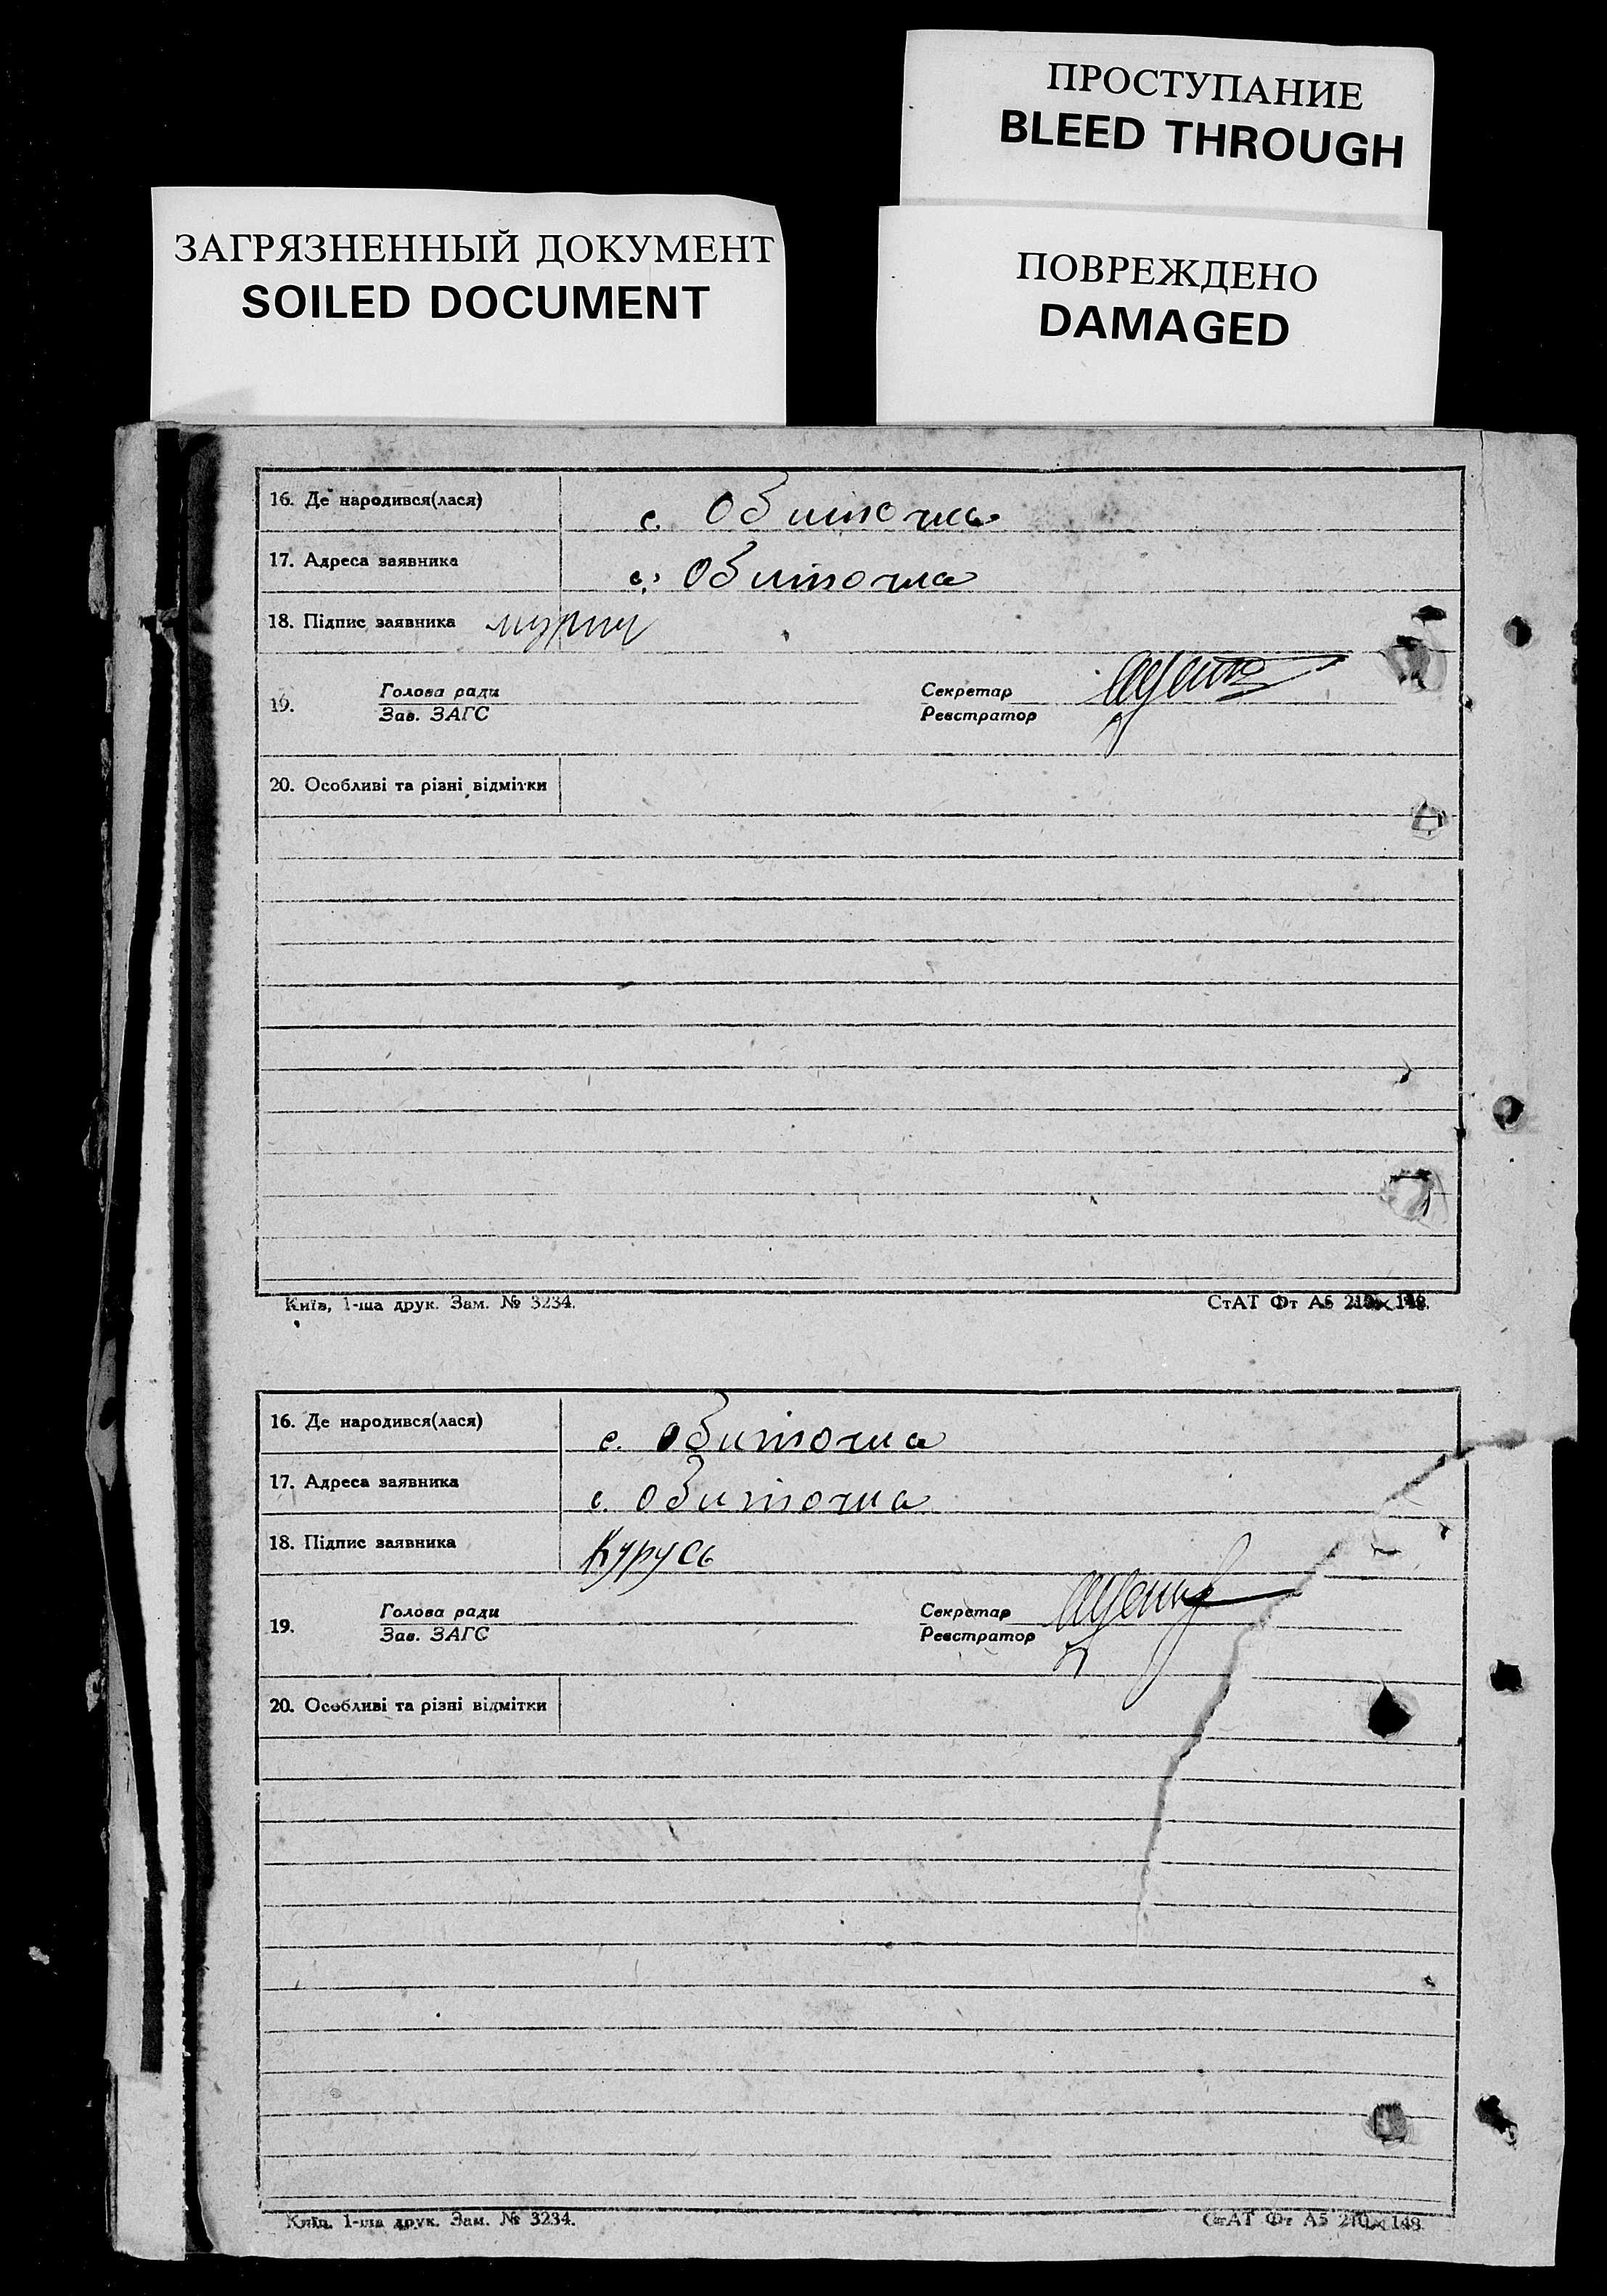 ПРОСТУПАНИЕ
BLEED THROUGH
ЗАГРЯЗНЕННЫЙ ДОКУМЕНТ
SOILED DOCUMENT
ПОВРЕЖДЕНО
DAMAGED
16. Де народився(лася) с. Обиточна
17. Адреса заявника с. Обиточна
18. Підпис заявника
19. Голова ради Секретар
Зав. ЗАГС Реєстратор
20. Особливі та різні відмітки
Київ, 1-ша друк. Зам. № 3234. СтАТ Фт А5 210×148.
16. Де народився(лася) с. Обиточна
17. Адреса заявника с. Обиточна
18. Підпис заявника Курусь
19. Голова ради Секретар
Зав. ЗАГС Реєстратор
20. Особливі та різні відмітки
Київ, 1-ша друк. Зам. № 3234. СтАТ Фт А5 210×148.